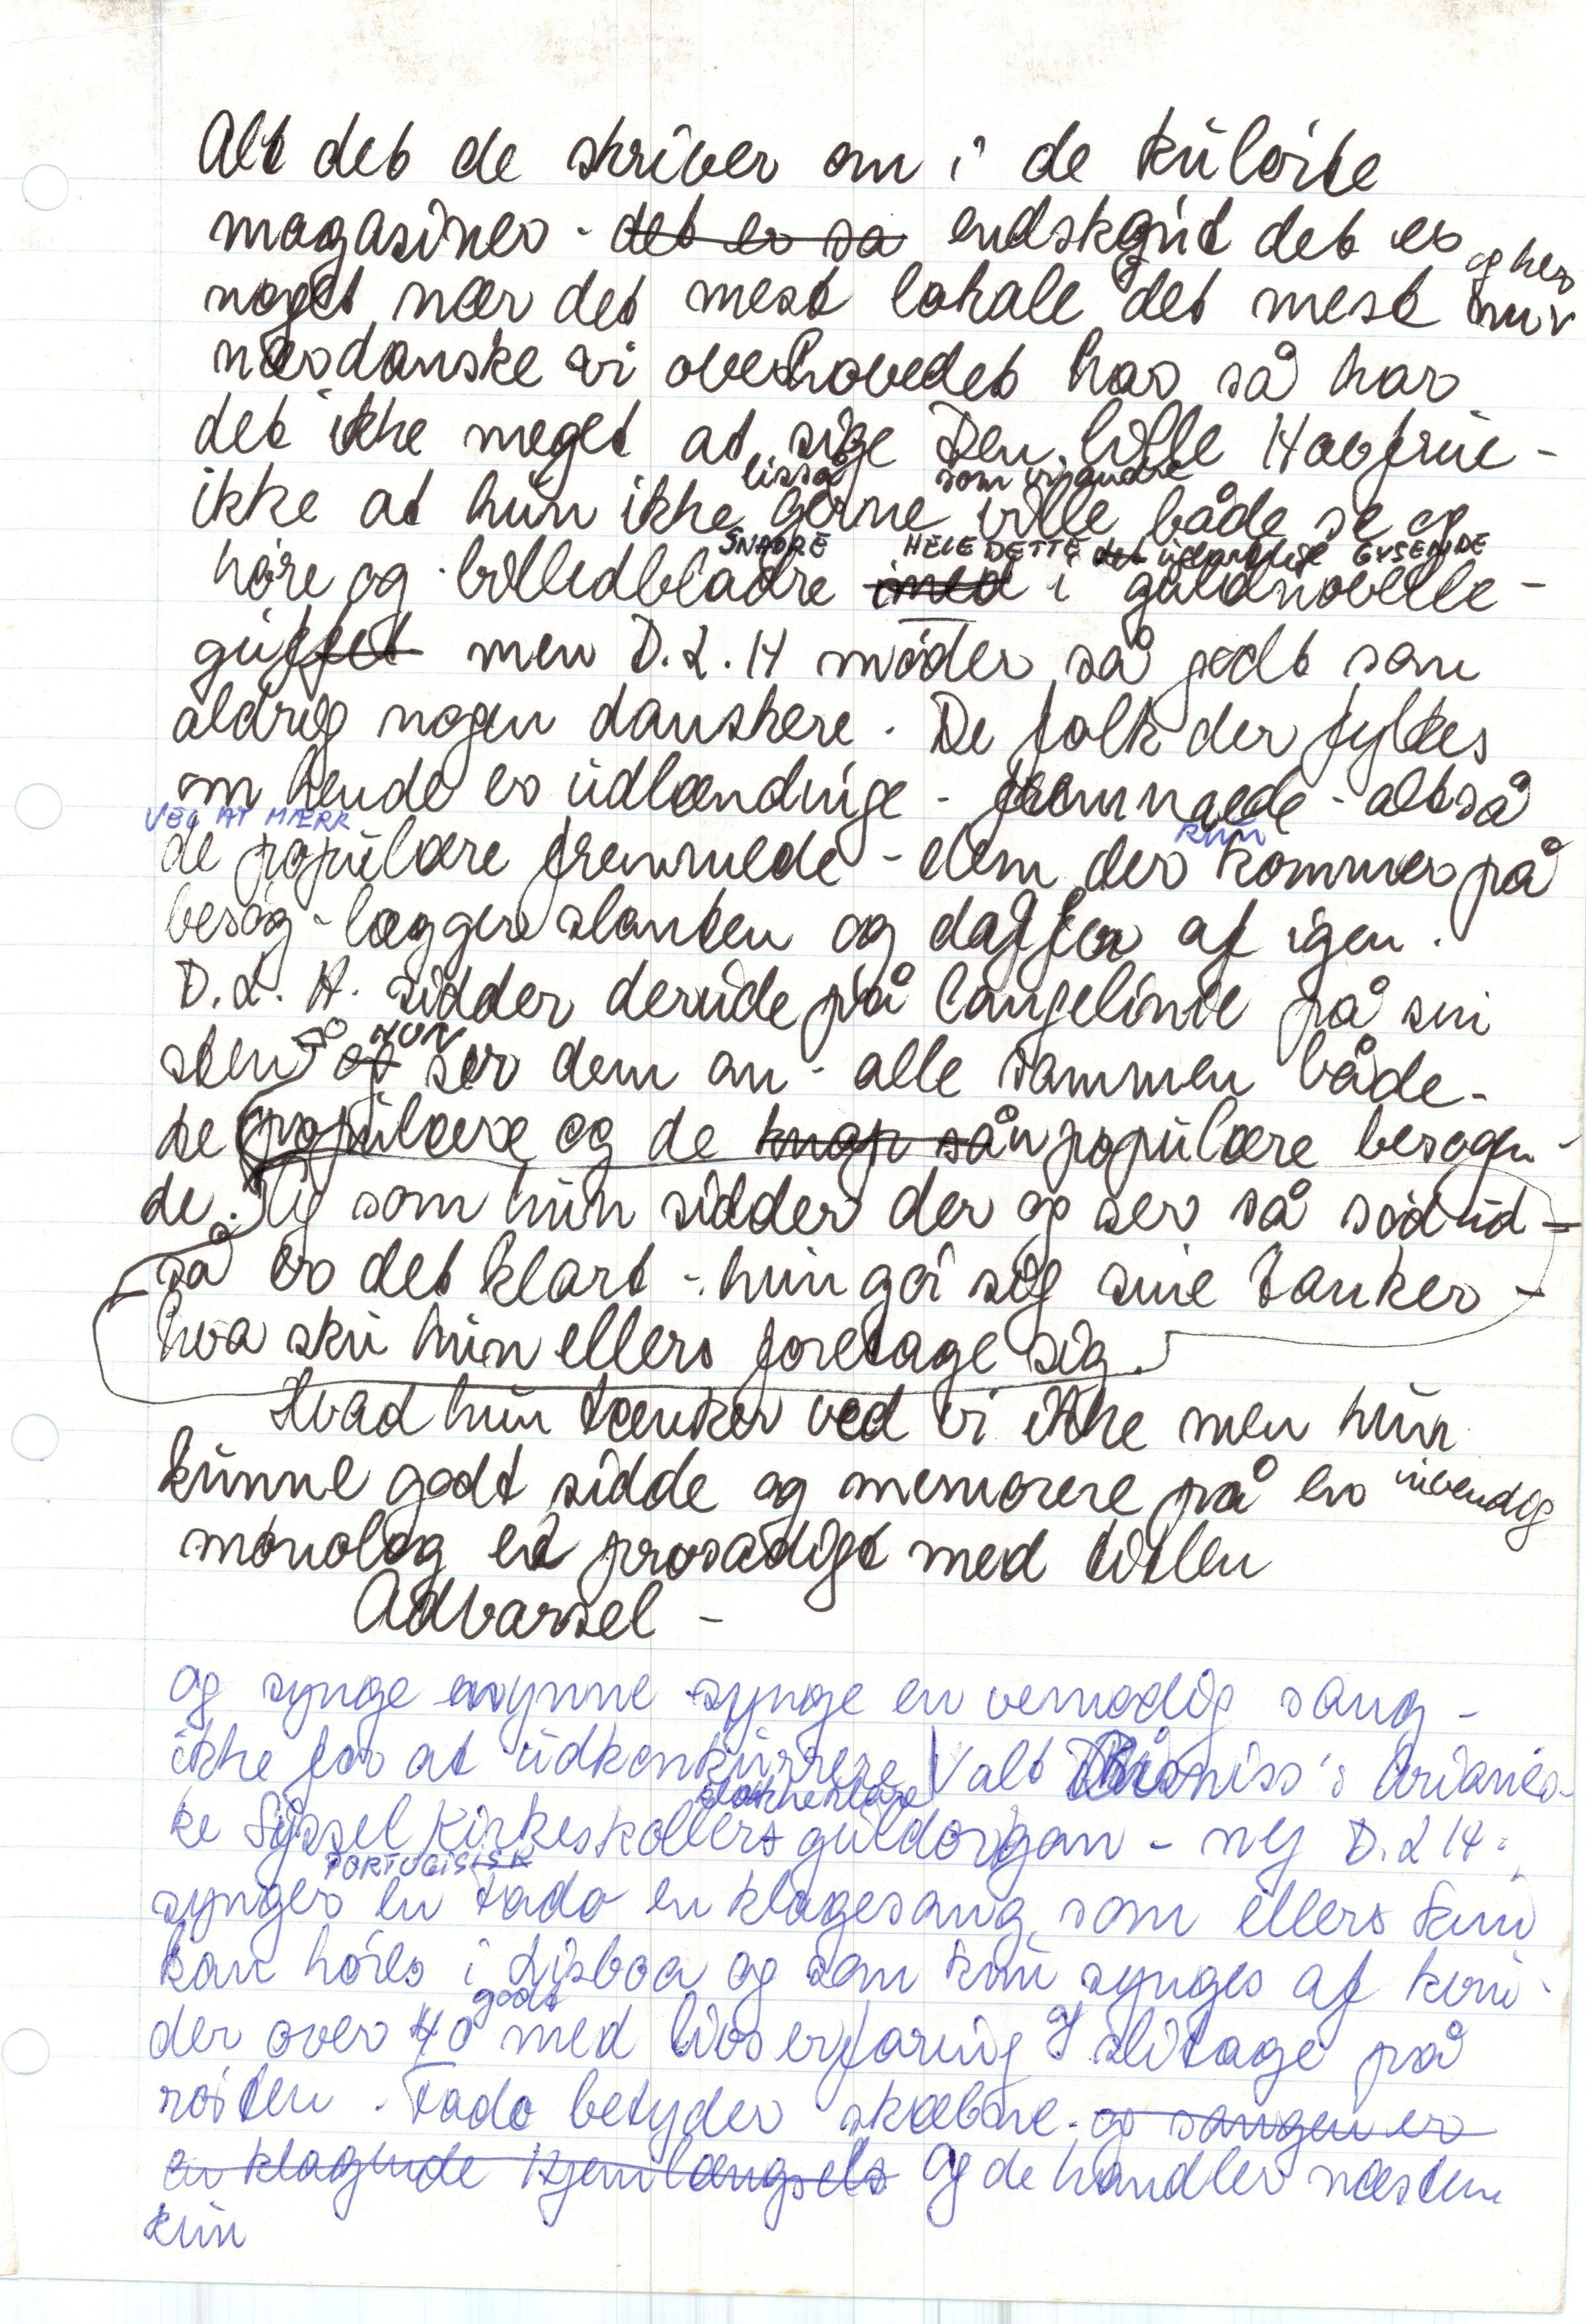 Alt det de skriver om i de kulörte
magasiner - det er så endskønt det er
og her
noget nær det mest lokale det mest
nærdanske vi overhovedet har så har
det ikke meget at sige Den lille Havfrue -
lisså som vi andre
ikke at hun ikke gerne ville både se og
SNADRE HELE DETTE GYSENDE
höre og billedbladre med i guldnovelle-
guffet men D.L.H möder så godt som
aldrig nogen danskere. De folk der fylkes
om hende er udlændinge - fremmede - altså
VEL AT MÆRK KUN
de populære fremmede - dem der kommer på
besög - lægger slanten og daffer af igen.
D.L.H. sidder derude på Langelinie på sin
så HUN
sten og ser dem an - alle sammen både
de populære og de knap så populære besøgen-
de. Og som hun sidder der og ser så söd ud -
så er det klart - hun gör sig sine tanker -
hva sku hun ellers foretage sig.
Hvad hun tænker ved vi ikke men hun
kunne godt sidde og memorere på en indvendig
monolog et prosadigt med titlen
Advarsel -
og synge synge en vemodig sang -
ikke for at udkonkurrere Valt
klokkeklare
ke Syssel Kirkeskollers guldorgan - nej D.L.H.
PORTUGISISK
synger en fado en klagesang som ellers kun
kan höres i Lisboa og som kun synges af kvin-
godt
der over 40 med livserfaring og slitage på
rösten. Fado betyder skæbne - og sangen er
en klagende hjemlængsels Og de handler næsten
kun